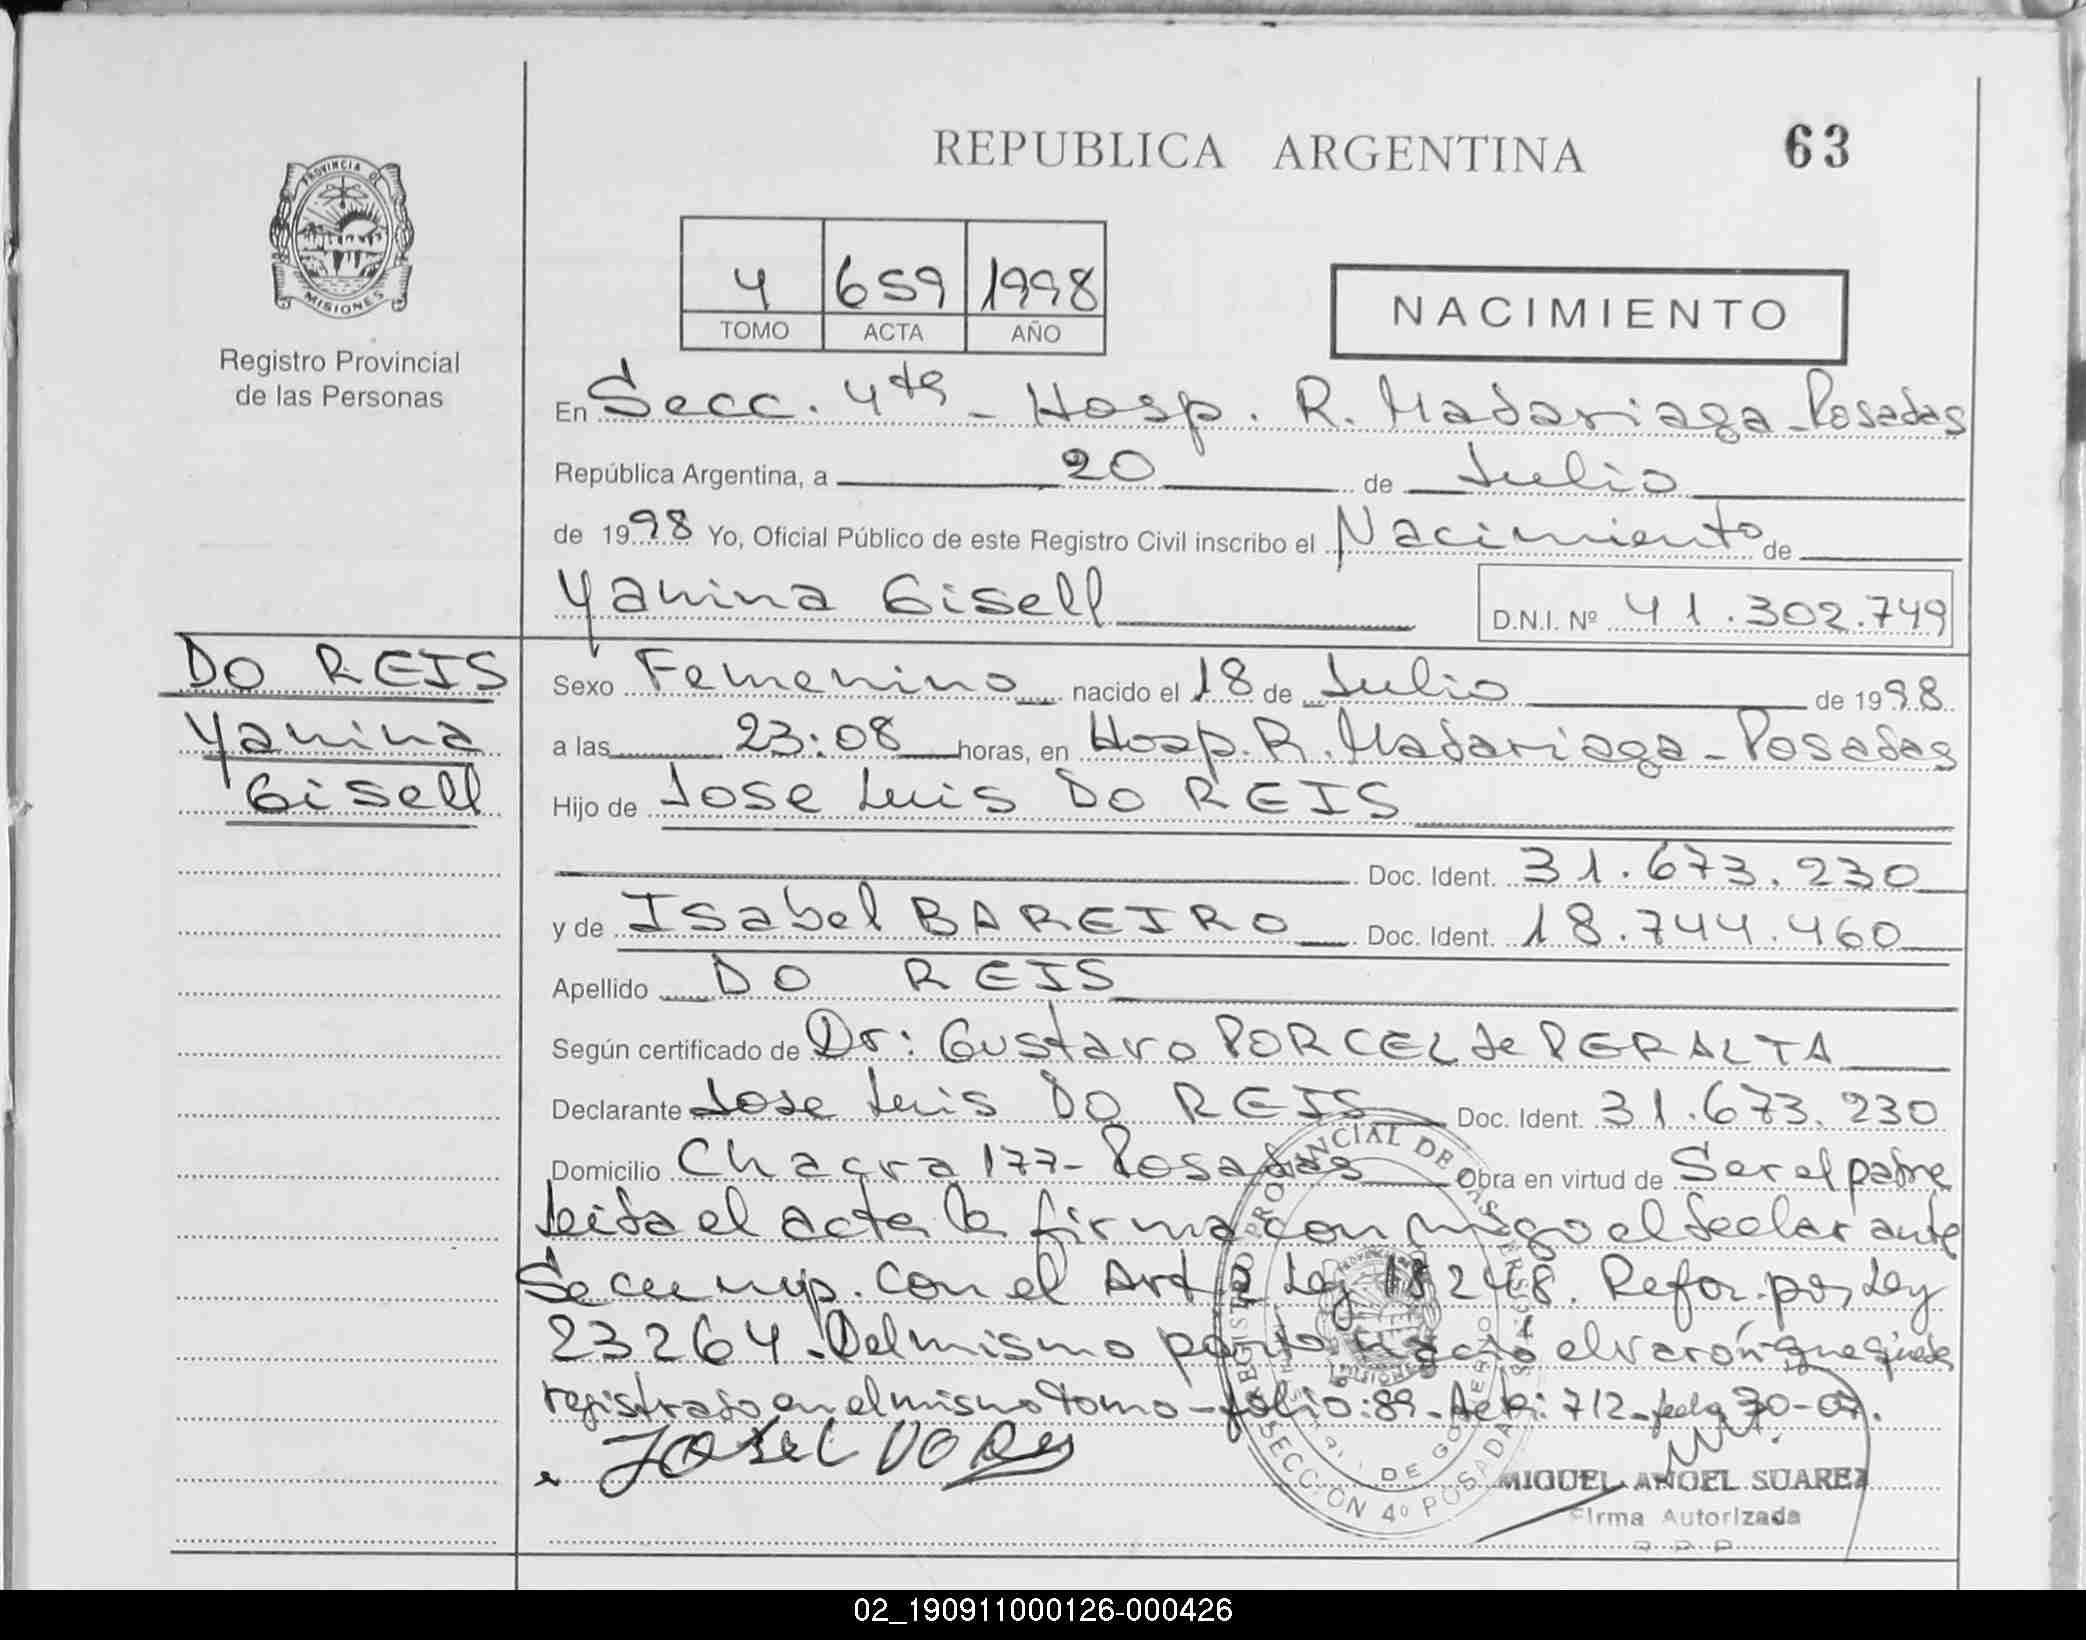 REPUBLICA ARGENTINA
63
PROVINCIA DE
MISIONES
Registro Provincial
de las Personas
4 659 1998
TOMO ACTA AÑO
NACIMIENTO
En Secc. 4ta - Hosp. R. Madariaga - Posadas
República Argentina, a 20 de Julio
de 1998 Yo, Oficial Público de este Registro Civil inscribo el Nacimiento de
Yanina Gisell D.N.I. Nº 41.302.749
DO REIS
Yanina
Gisell
Sexo Femenino nacido el 18 de Julio de 1998
a las 23:08 horas, en Hosp. R. Madariaga - Posadas
Hijo de Jose Luis DO REIS
Doc. Ident. 31.673.230
y de Isabel BAREIRO Doc. Ident. 18.744.460
Apellido DO REIS
Según certificado de Dr: Gustavo PORCEL de PERALTA
Declarante Jose Luis DO REIS Doc. Ident. 31.673.230
Domicilio Chacra 177 - Posadas Obra en virtud de Ser el padre
Leida el acta la firma con migo el declarante
Se cump. con el Art 2 Ley 18248. Refor. por Ley
23264. Del mismo parto nació el varón que queda
registrado en el mismo tomo - folio: 89 - Acta: 712 - fecha 30-07.
MIGUEL ANGEL SUAREZ
Firma Autorizada
SECCION 4º POSADAS
02_190911000126-000426